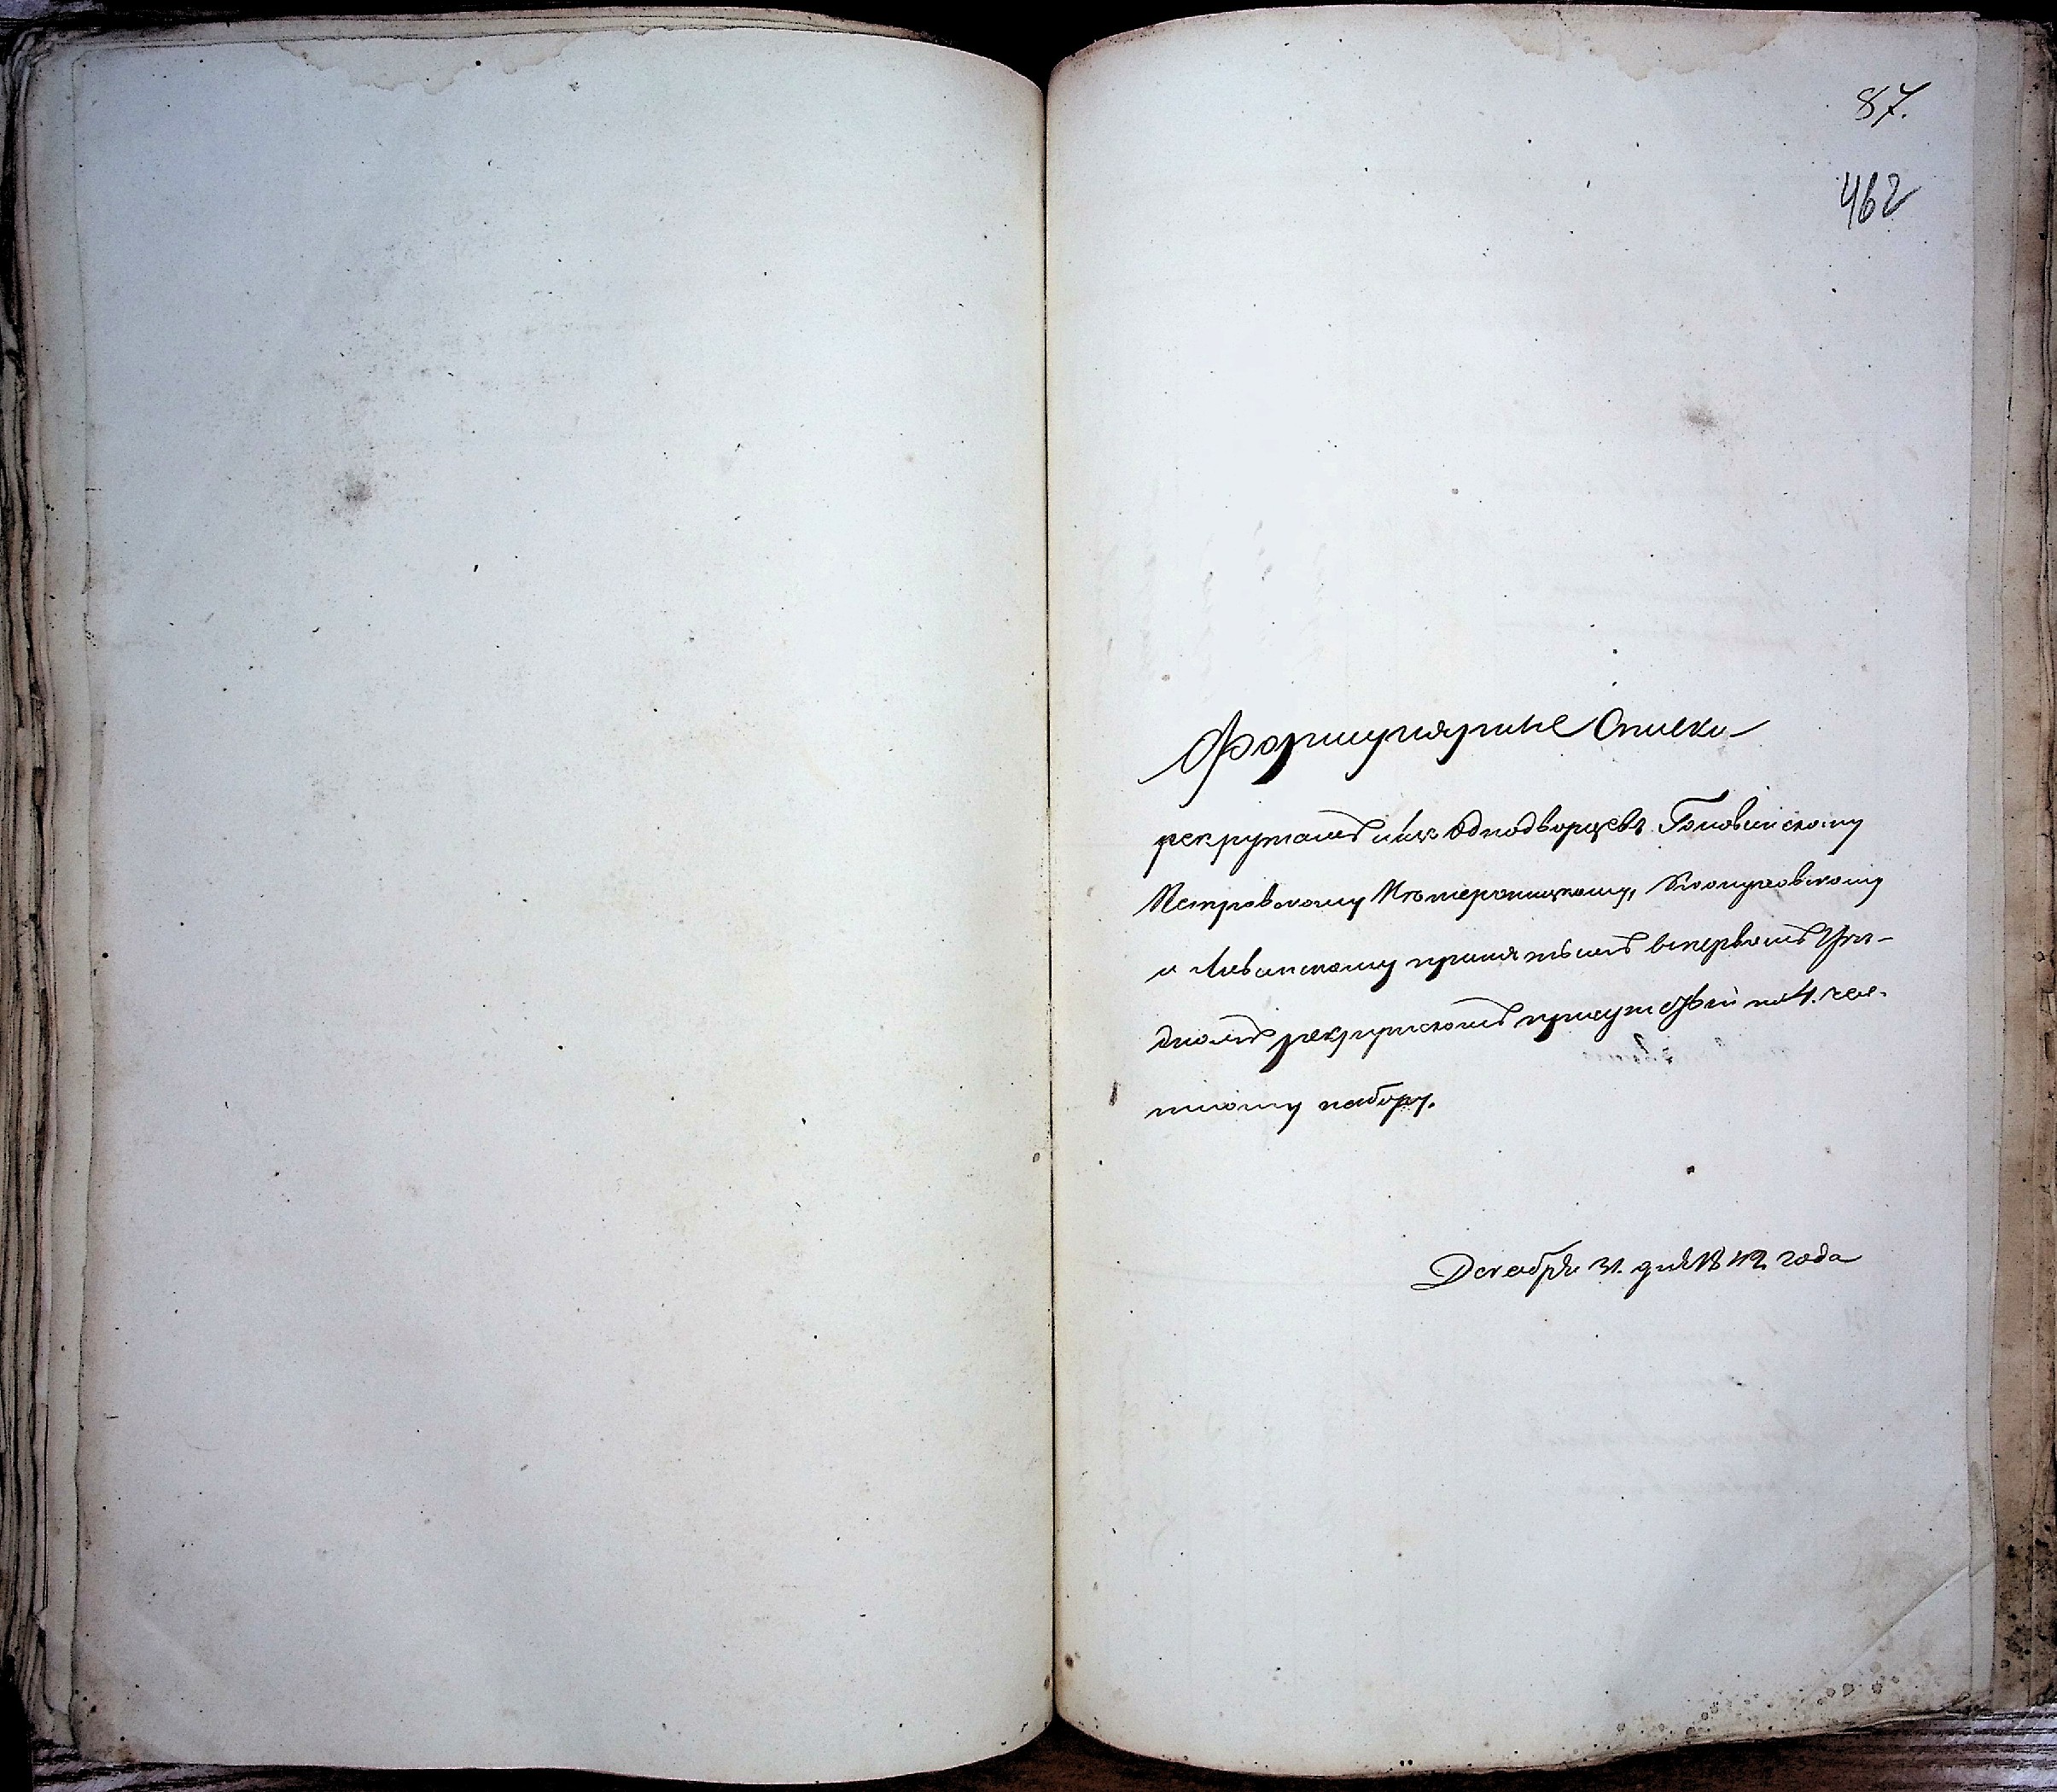 87.
462
Формулярные Списки
рекрутамъ изъ Однодворцевъ Головинскому
Петровскому
и Ливенскому принятымъ впервомъ Уѣз-
дномъ рекрутскомъ присутствіи по 4. час-
тному набору.
Декабря 31. дня 1842 года